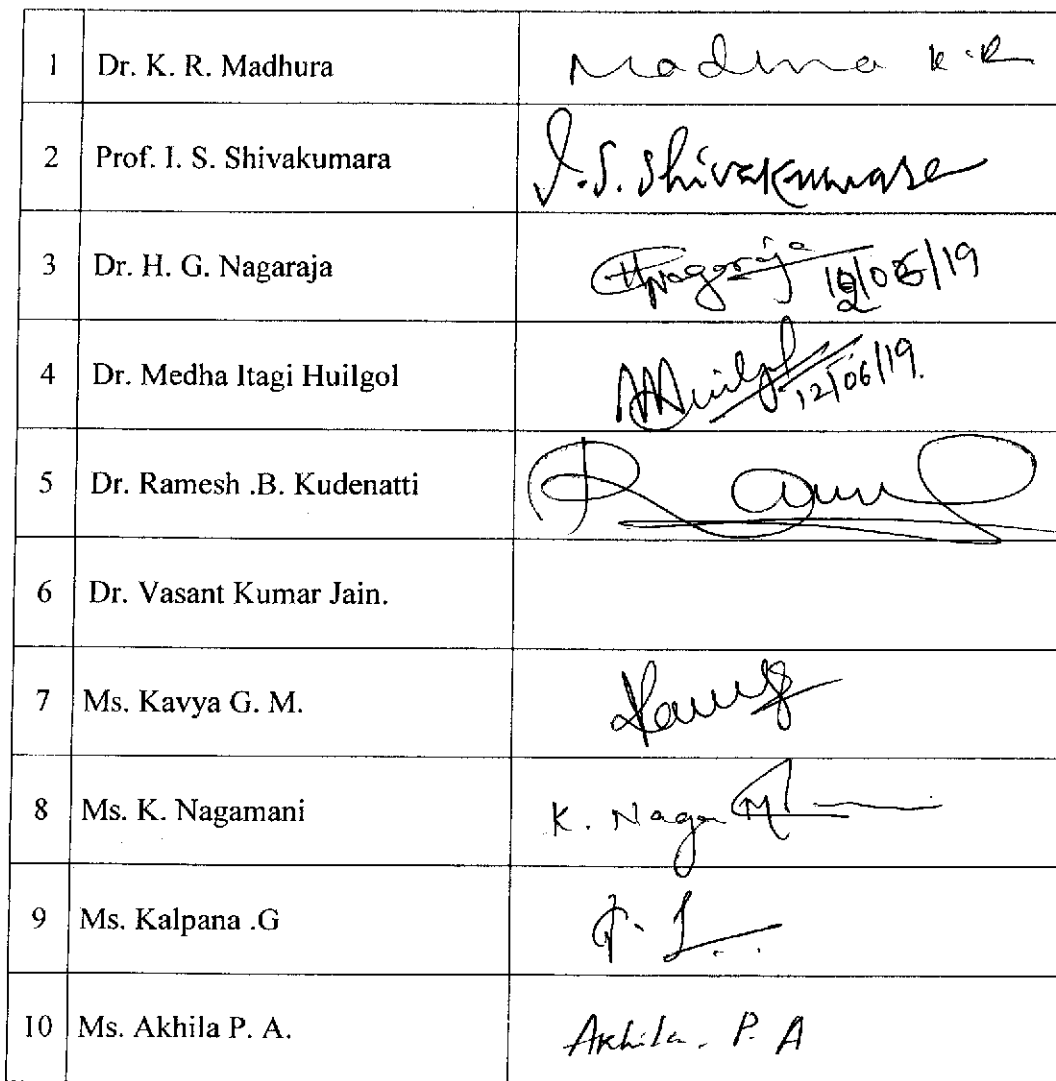 1 Dr. K. R. Madhura Madhura K.R
2 Prof. I. S. Shivakumara I.S. Shivakumara
3 Dr. H. G. Nagaraja HNagaraja 12/06/19
4 Dr. Medha Itagi Huilgol Huilgol 12/06/19.
5 Dr. Ramesh .B. Kudenatti
6 Dr. Vasant Kumar Jain.
7 Ms. Kavya G. M.
8 Ms. K. Nagamani K. Naga
9 Ms. Kalpana .G
10 Ms. Akhila P. A. Akhila. P. A